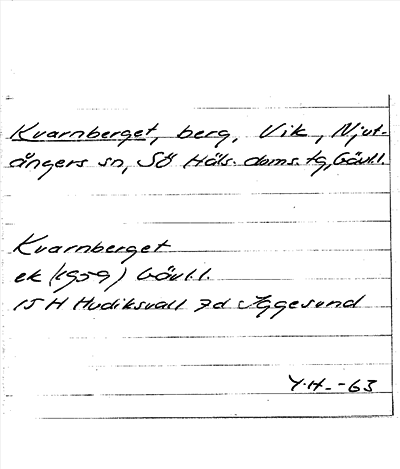 Kvarnberget, berg, Vik, Njut-
ångers sn, Sö Häls. doms. tg, Gävll.
Kvarnberget
ek (1959) Gävll.
15 H Hudiksvall 7d Iggesund
Y.H. -63